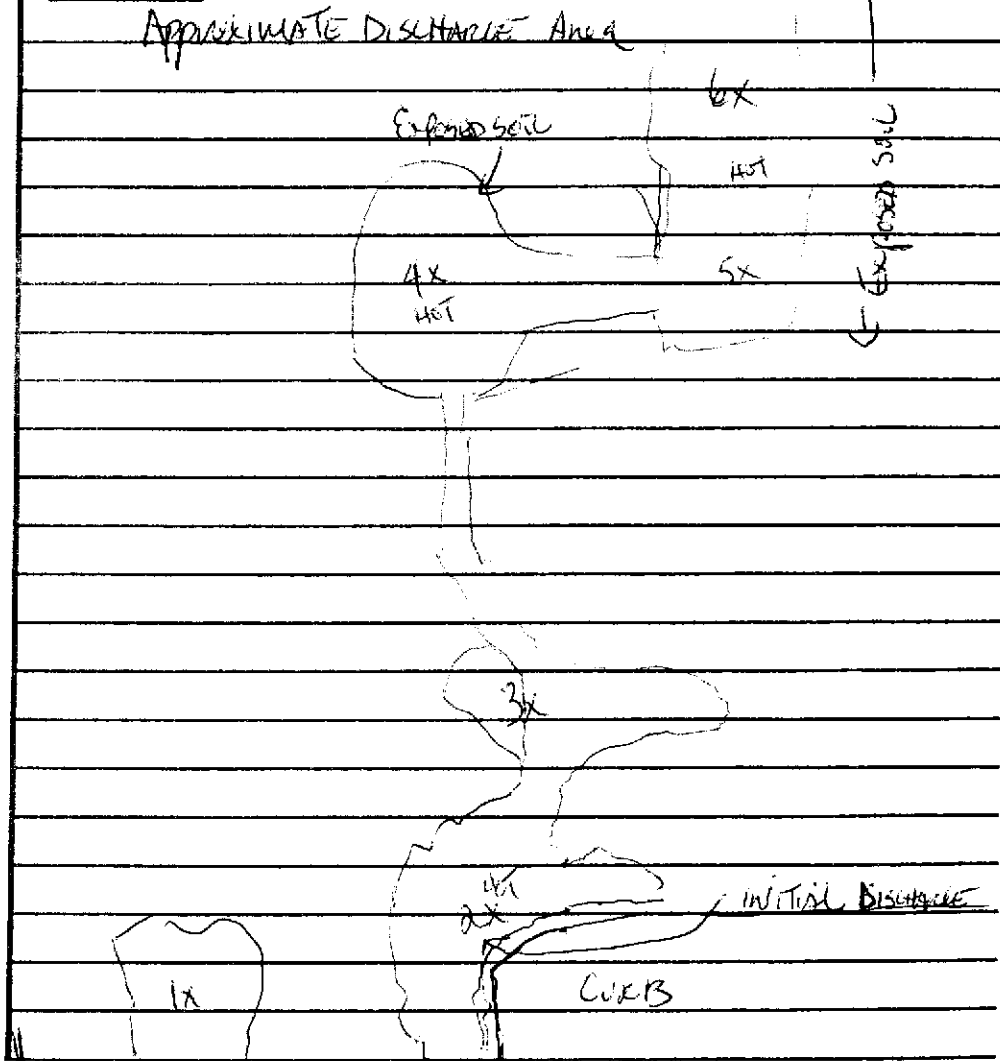 APPROXIMATE DISCHARGE Area
6X
Exposed Soil
HOT
Exposed Soil
4X
5X
HOT
3X
HOT
2X
INITIAL DISCHARGE
X
1X
CURB